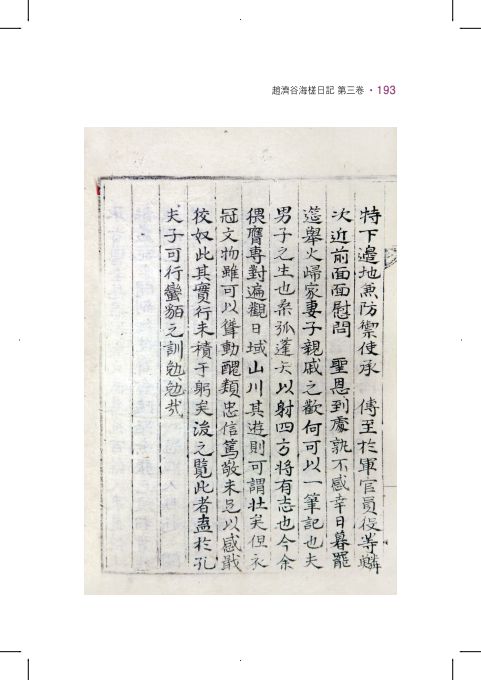 趙濟谷海槎日記 第三卷 · 193
特下邊地兼防禦使承 傳至於軍官員役等鱗
次近前面面慰問 聖恩到處孰不感幸日暮罷
筵擧火歸家妻子親戚之歡何可以一筆記也夫
男子之生也桑弧蓬矢以射四方將有志也今余
猥膺專對遍觀日域山川其遊則可謂壯矣但衣
冠文物雖可以聳動醜類忠信篤敬未足以感戢
狡奴此其實行未積于躬矣後之覽此者盍於孔
夫子可行蠻貊之訓勉勉哉